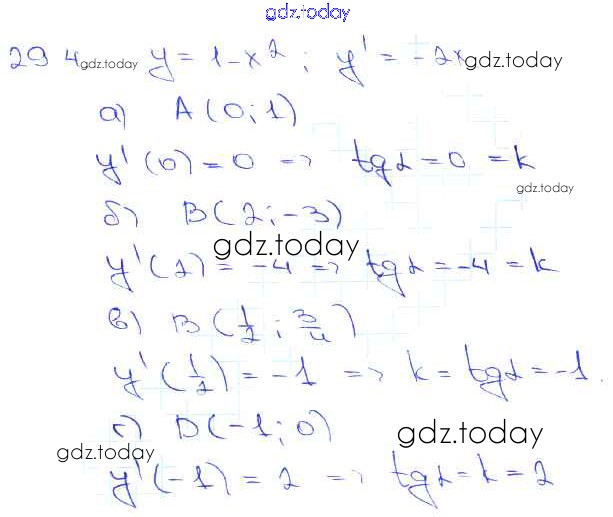 gdz.today
29 4 gdz.today y = 1 - x² ; y' = -2x gdz.today
а) A (0; 1)
y' (0) = 0 => tg α = 0 = k
gdz.today
б) B (2; -3)
gdz.today
y' (2) = -4 => tg α = -4 = k
в) B (1/2 ; 3/4)
y' (1/2) = -1 => k = tg α = -1.
г) D (-1; 0)
gdz.today
gdz.today
y' (-1) = 2 => tg α = k = 2